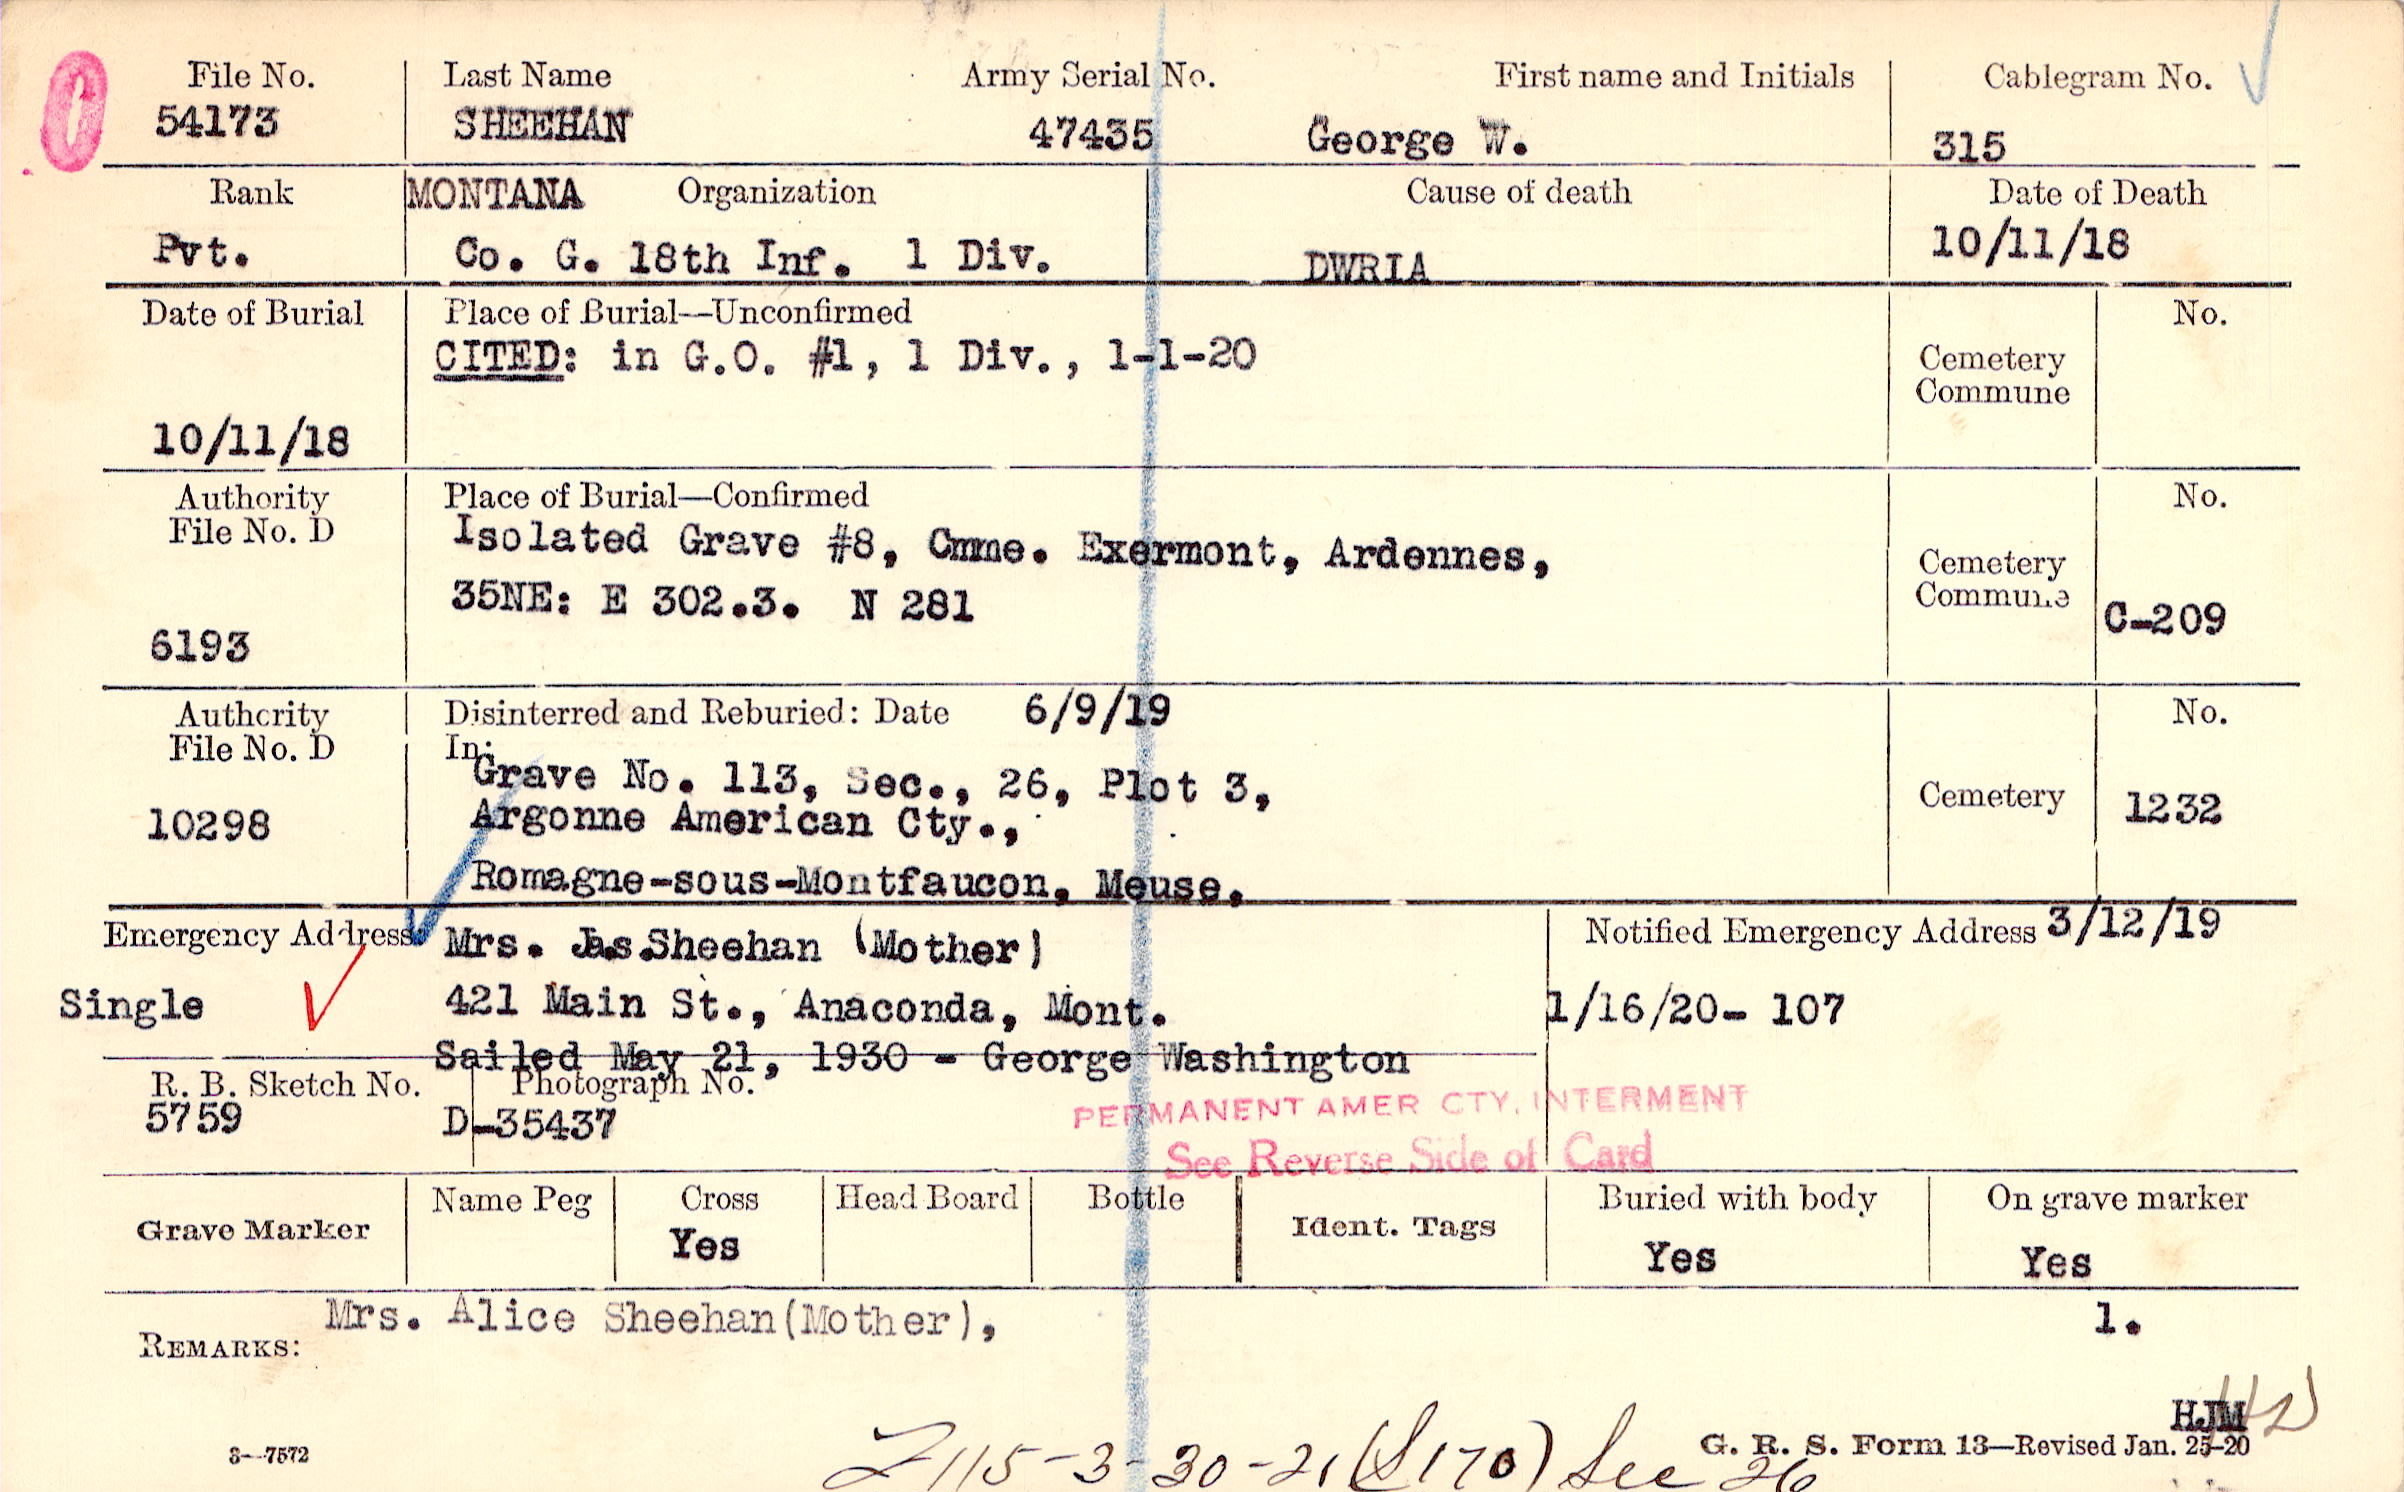 0
File No. Last Name Army Serial No. First name and Initials Cablegram No.
54173 SHEEHAN 47435 George W. 315
Rank MONTANA Organization Cause of death Date of Death
Pvt. Co. G. 18th Inf. 1 Div. DWRIA 10/11/18
Date of Burial Place of Burial—Unconfirmed No.
CITED: in G.O. #1, 1 Div., 1-1-20 Cemetery
Commune
10/11/18
Authority Place of Burial—Confirmed No.
File No. D Isolated Grave #8, Cmme. Exermont, Ardennes, Cemetery
35NE: E 302.3. N 281 Commune C-209
6193
Authority Disinterred and Reburied: Date 6/9/19 No.
File No. D In:
Grave No. 113, Sec., 26, Plot 3,
10298 Argonne American Cty., Cemetery 1232
Romagne-sous-Montfaucon, Meuse.
Emergency Address Mrs. Jas.Sheehan (Mother) Notified Emergency Address 3/12/19
Single 421 Main St., Anaconda, Mont. 1/16/20- 107
Sailed May 21, 1930 - George Washington
R. B. Sketch No. Photograph No.
5759 D-35437
PERMANENT AMER CTY. INTERMENT
See Reverse Side of Card
Grave Marker Name Peg Cross Head Board Bottle Ident. Tags Buried with body On grave marker
Yes Yes Yes
REMARKS: Mrs. Alice Sheehan(Mother), 1.
HJM
3—7572 G. R. S. Form 13—Revised Jan. 25-20
115-3-30-21 (S170) See 26